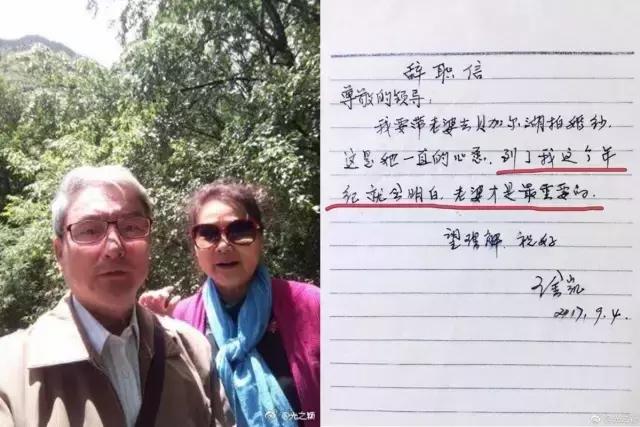 辞职信
尊敬的领导:
我要带老婆去贝加尔湖拍婚纱,
这是她一直的心愿. 到了我这个年
纪就会明白, 老婆才是最重要的.
望理解. 祝好
2017.9.4